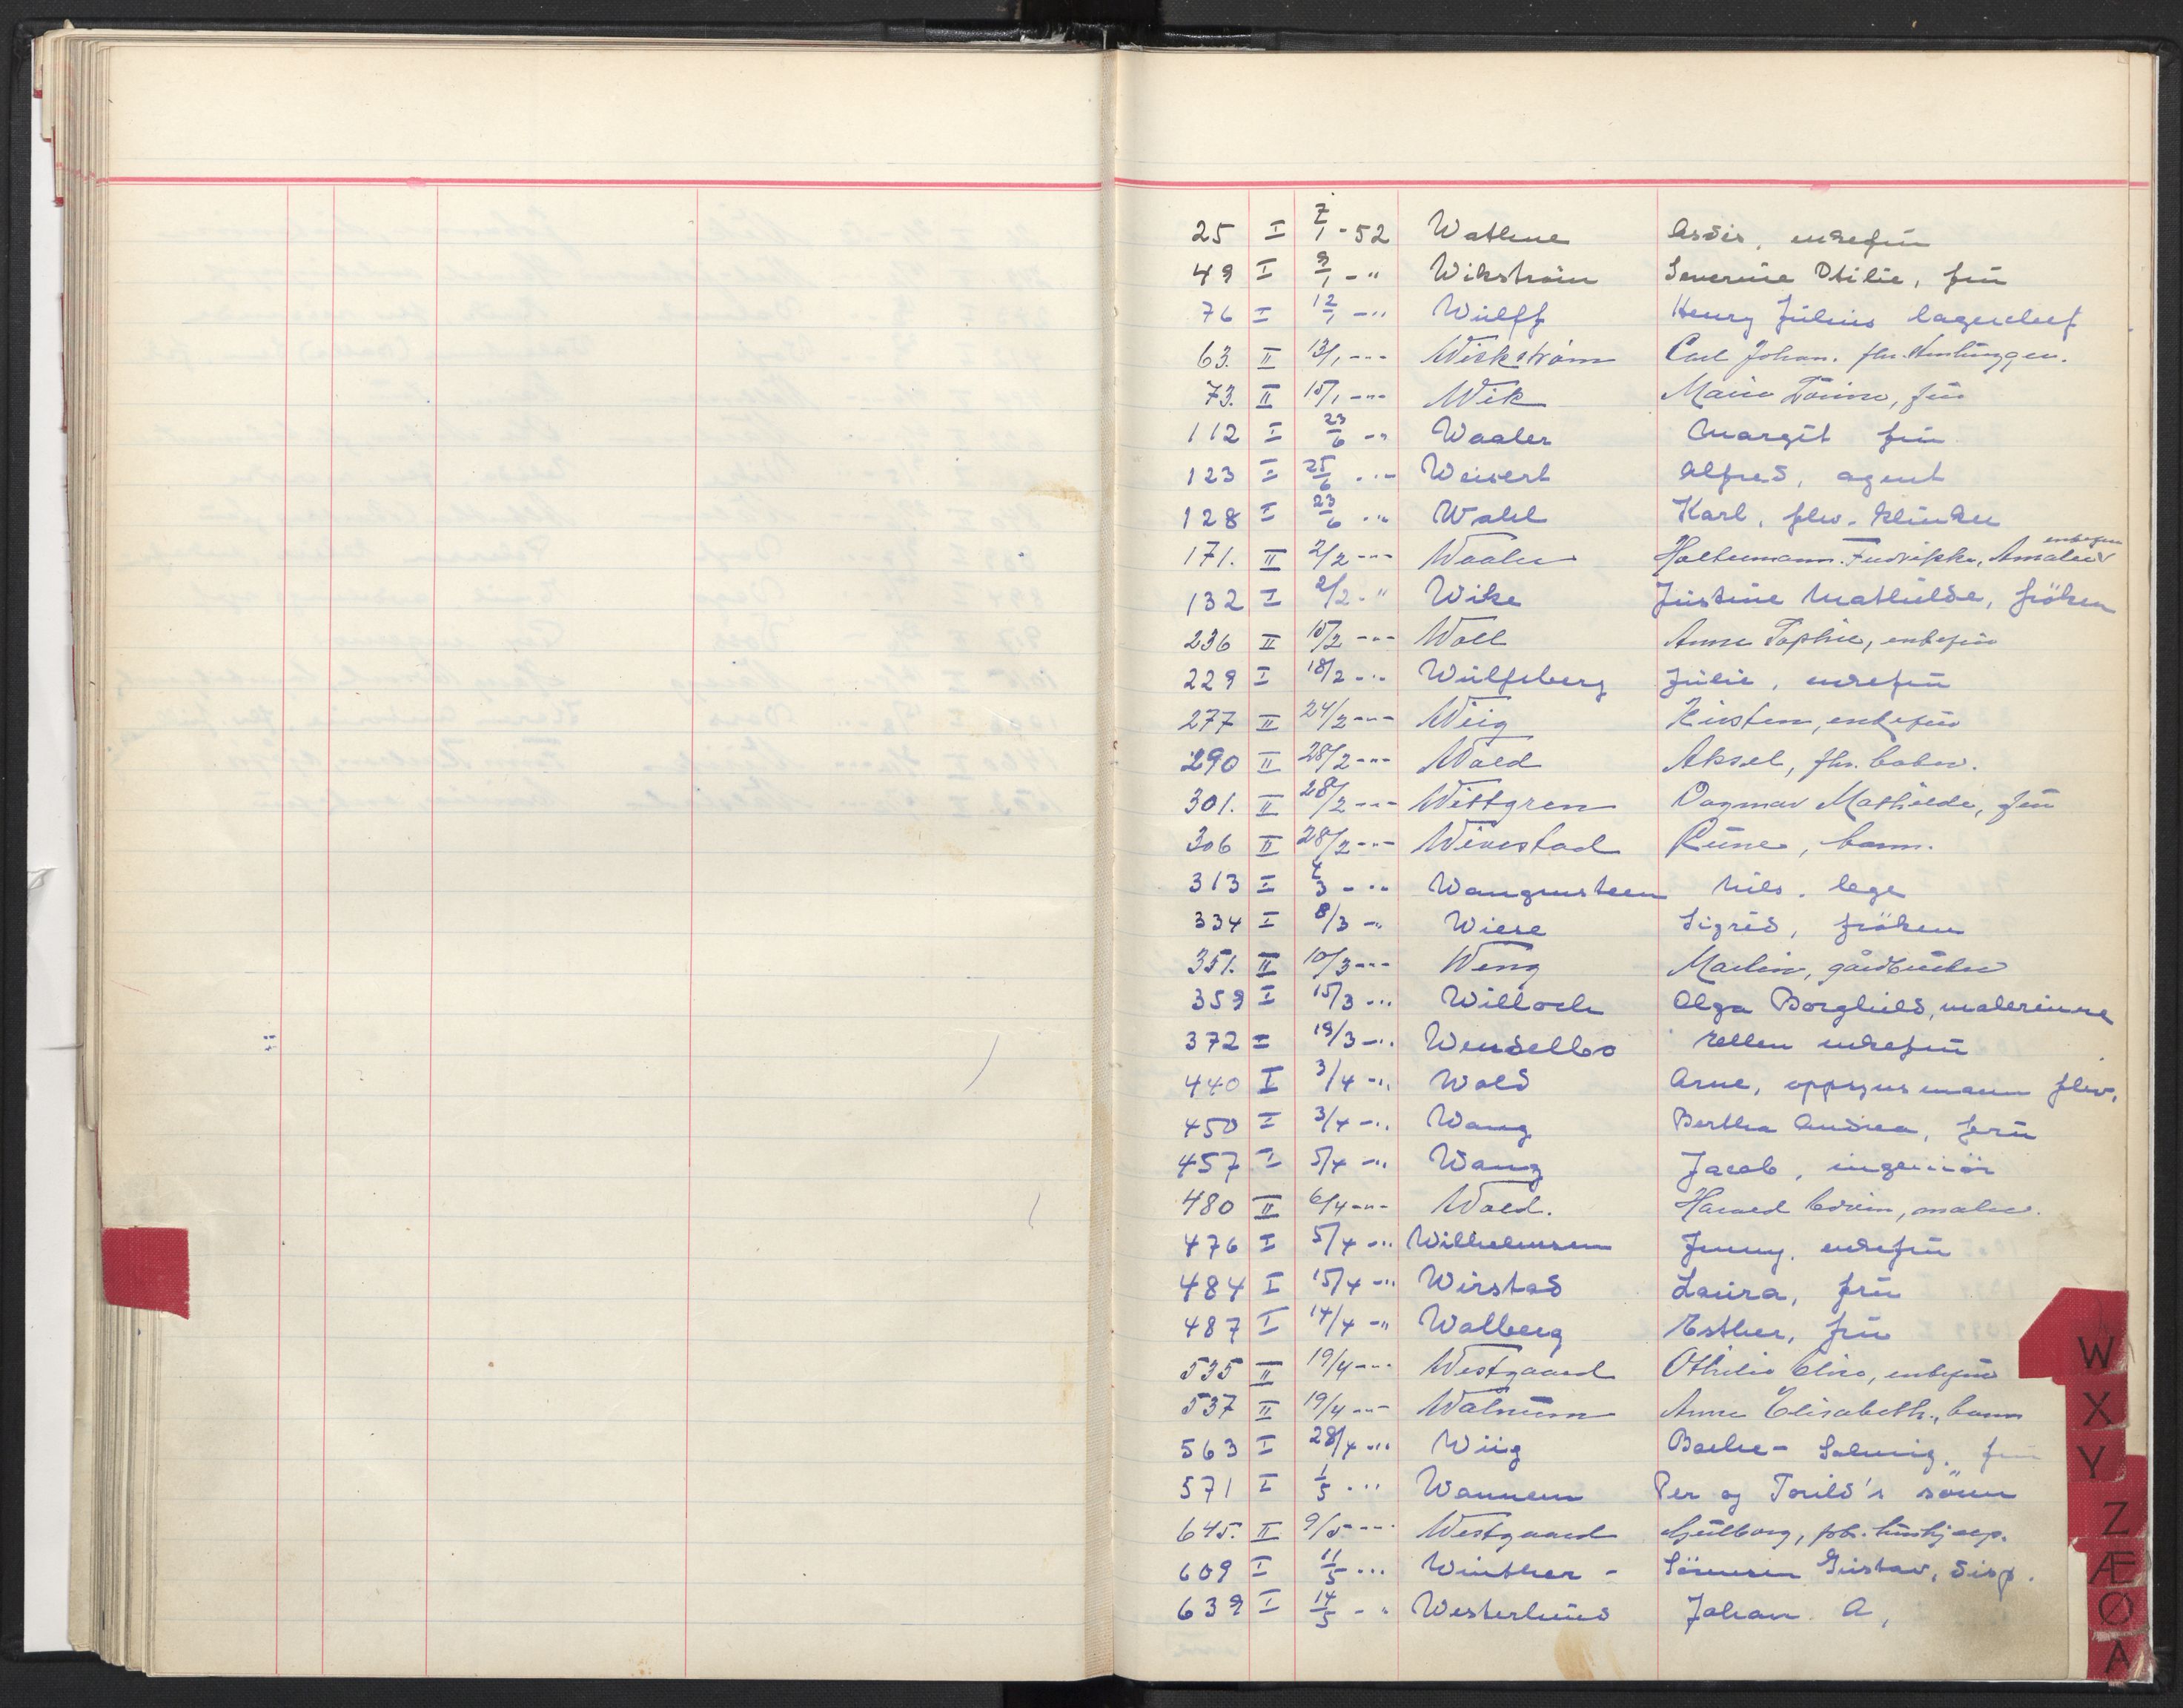 25 I 7/1 - 52 Wathne Asdis, enkefrü
49 I 9/1 - " Wikström Severine Otilie, frü
76 I 12/1 - " Wülff Henry Jülius lagerchef
63. II 13/1 - " - Wickström Carl Johan. fhv.
73. II 15/1 - " - Wik Marie frü
112 I 23/6 - " Waaler Margit frü
123 I 25/6 - " - Weisert Alfred, agent
128 I 23/6 - " Wahl Karl, fhv.
171. II 2/2 - " - Waaler Holtermann Fredrikke, Amalie enkefrü
132 I 2/2 - " Wike Jüstine Mathilde, fröken
236 II 15/2 - " - Woll Anne Sophie, enkefrü
229 I 18/2 - " Wülfsberg Jülie, enkefrü
277 II 24/2 - " - Wiig Kirsten, enkefrü
290 II 28/2 - " - Wold Aksel, fhv.
301. II 28/2 - " - Wittgren Dagmar Mathilde, frü
306 II 28/2 - " - Wivestad Rüne, barn.
313 I 4/3 - " Wangensteen Nils. lege
334 I 8/3 - " Wiese Sigrid, fröken
351. II 10/3 - " - Weng Martin, gårdbrüker
359 I 15/3 - " Willoch Olga Borghild, malerinne
372 I 19/3 - " Wendelbo Ellen enkefrü
440 I 3/4 - " Wold Arne, oppsynsmann fhv.
450 I 3/4 - " Wang Bertha Andrea, frü
457 I 5/4 - " Wang Jacob, ingeniör
480 II 6/4 - " - Wold. Harald Edvin, maler.
476 I 5/4 - " Wilhelmsen Jenny, enkefrü
484 I 15/4 - " Wirstad Laüra, frü
487 I 14/4 - " Walberg Esther, frü
535 II 19/4 - " - Westgaard Othilie Elise, enkefrü
537 II 19/4 - " - Walnüm Anne Elisabeth., barn
563 I 28/4 - " Wiig Bache - Solveig. frü
571 I 1/5 - " Wannem Per og Torild's sönn
645. II 9/5 - " - Westgaard fab.
609 I 11/5 - " Winther - Sörensen Güstav, disp.
639 I 14/5 - " Westerlünd Johan A,
W
X
Y
Z
Æ
Ø
A